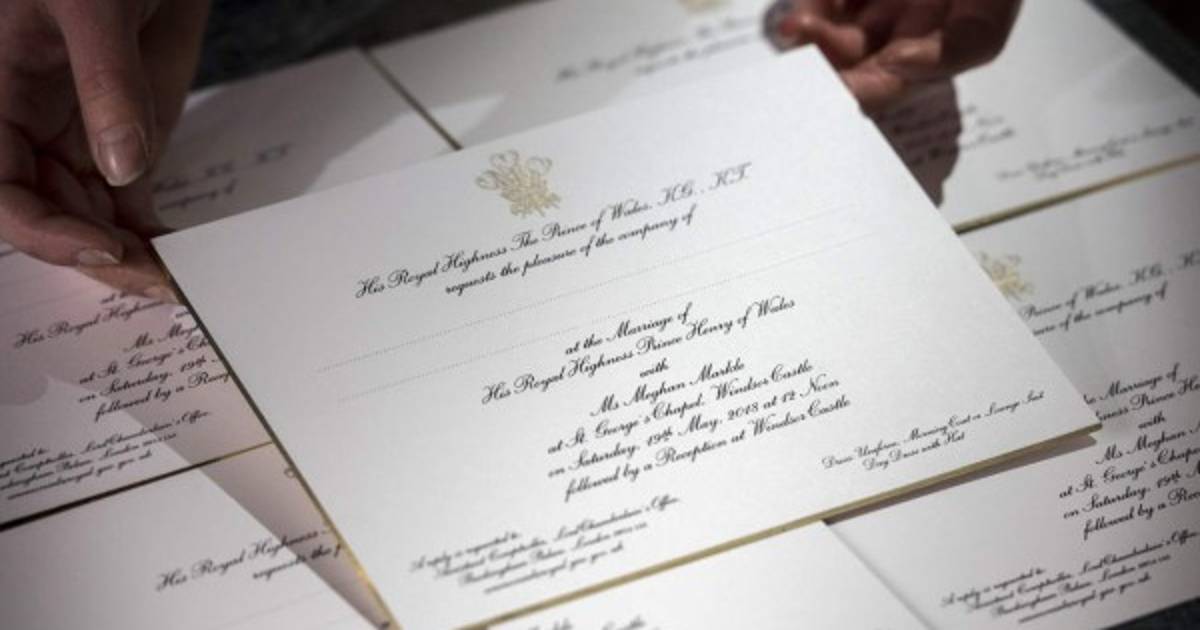 His Royal Highness The Prince of Wales, K.G., K.T.
requests the pleasure of the company of
at the Marriage of
His Royal Highness Prince Henry of Wales
with
Ms Meghan Markle
at St. George's Chapel, Windsor Castle
on Saturday, 19th May, 2018 at 12 Noon
followed by a Reception at Windsor Castle
Dress: Uniform, Morning Coat or Lounge Suit
Day Dress with Hat
A reply is requested to:
Assistant Comptroller, Lord Chamberlain's Office,
Buckingham Palace, London
His Royal High
Ms Megh
at St. George's Ch
on Saturday, 19th
followed by a Rece
Lord Chamberlain's Office
Buckingham Palace, London
His Royal Highness
requests the
Prince of Wales, K.G., K
of the company of
Marriage of
with
Ms Meghan
at St. George's Chape
on Saturday, 19th
followed by a Re
A reply is requested to:
Assistant Comptroller, Lord Chamberlain's
Buckingham Palace, London